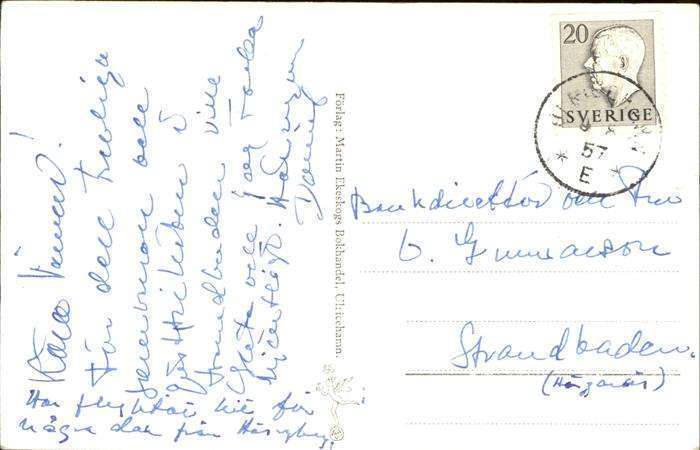 Kära Vänner!
För den trevliga
samvaron och
gästfriheten å
Strandbaden ville
Greta och jag tacka
hjärtligt. Hälsningar
Har flyttat hit för
några dar från Hälsingborg.
Förlag: Martin Ekeskogs Bokhandel, Ulricehamn.
20
SVERIGE
57
E
Bankdirektör och Fru
O. Gunnarson
Strandbaden.
(Höganäs)